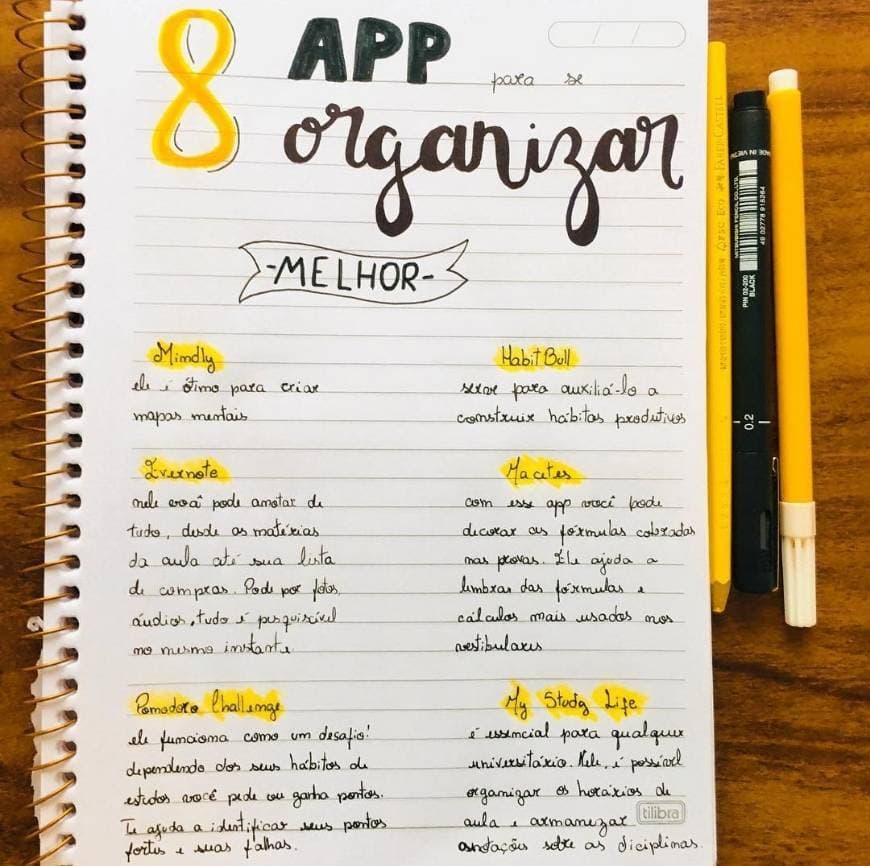 8 APP para se
organizar
-MELHOR-
Mindly
ele é ótimo para criar
mapas mentais
HabitBull
serve para auxiliá-lo a
construir hábitos produtivos
Evernote
nele você pode anotar de
tudo, desde as matérias
da aula até sua lista
de compras. Pode por fotos,
áudios, tudo é pesquisável
no mesmo instante.
Macetes
com esse app você pode
decorar as fórmulas cobradas
nas provas. Ele ajuda a
lembrar das fórmulas e
cálculos mais usados nos
vestibulares
Pomodoro Challenge
ele funciona como um desafio!
dependendo dos seus hábitos de
estudos você pede ou ganha pontos.
Te ajuda a identificar seus pontos
fortes e suas falhas.
My Study Life
é essencial para qualquer
universitário. Nele, é possível
organizar os horários de
aula e armanezar
anotações sobre as diciplinas.
tilibra
FABER-CASTELL
MADE IN
MITSUBISHI PENCIL CO., LTD.
49 02778 915264
PIN 02-200
BLACK
0.2